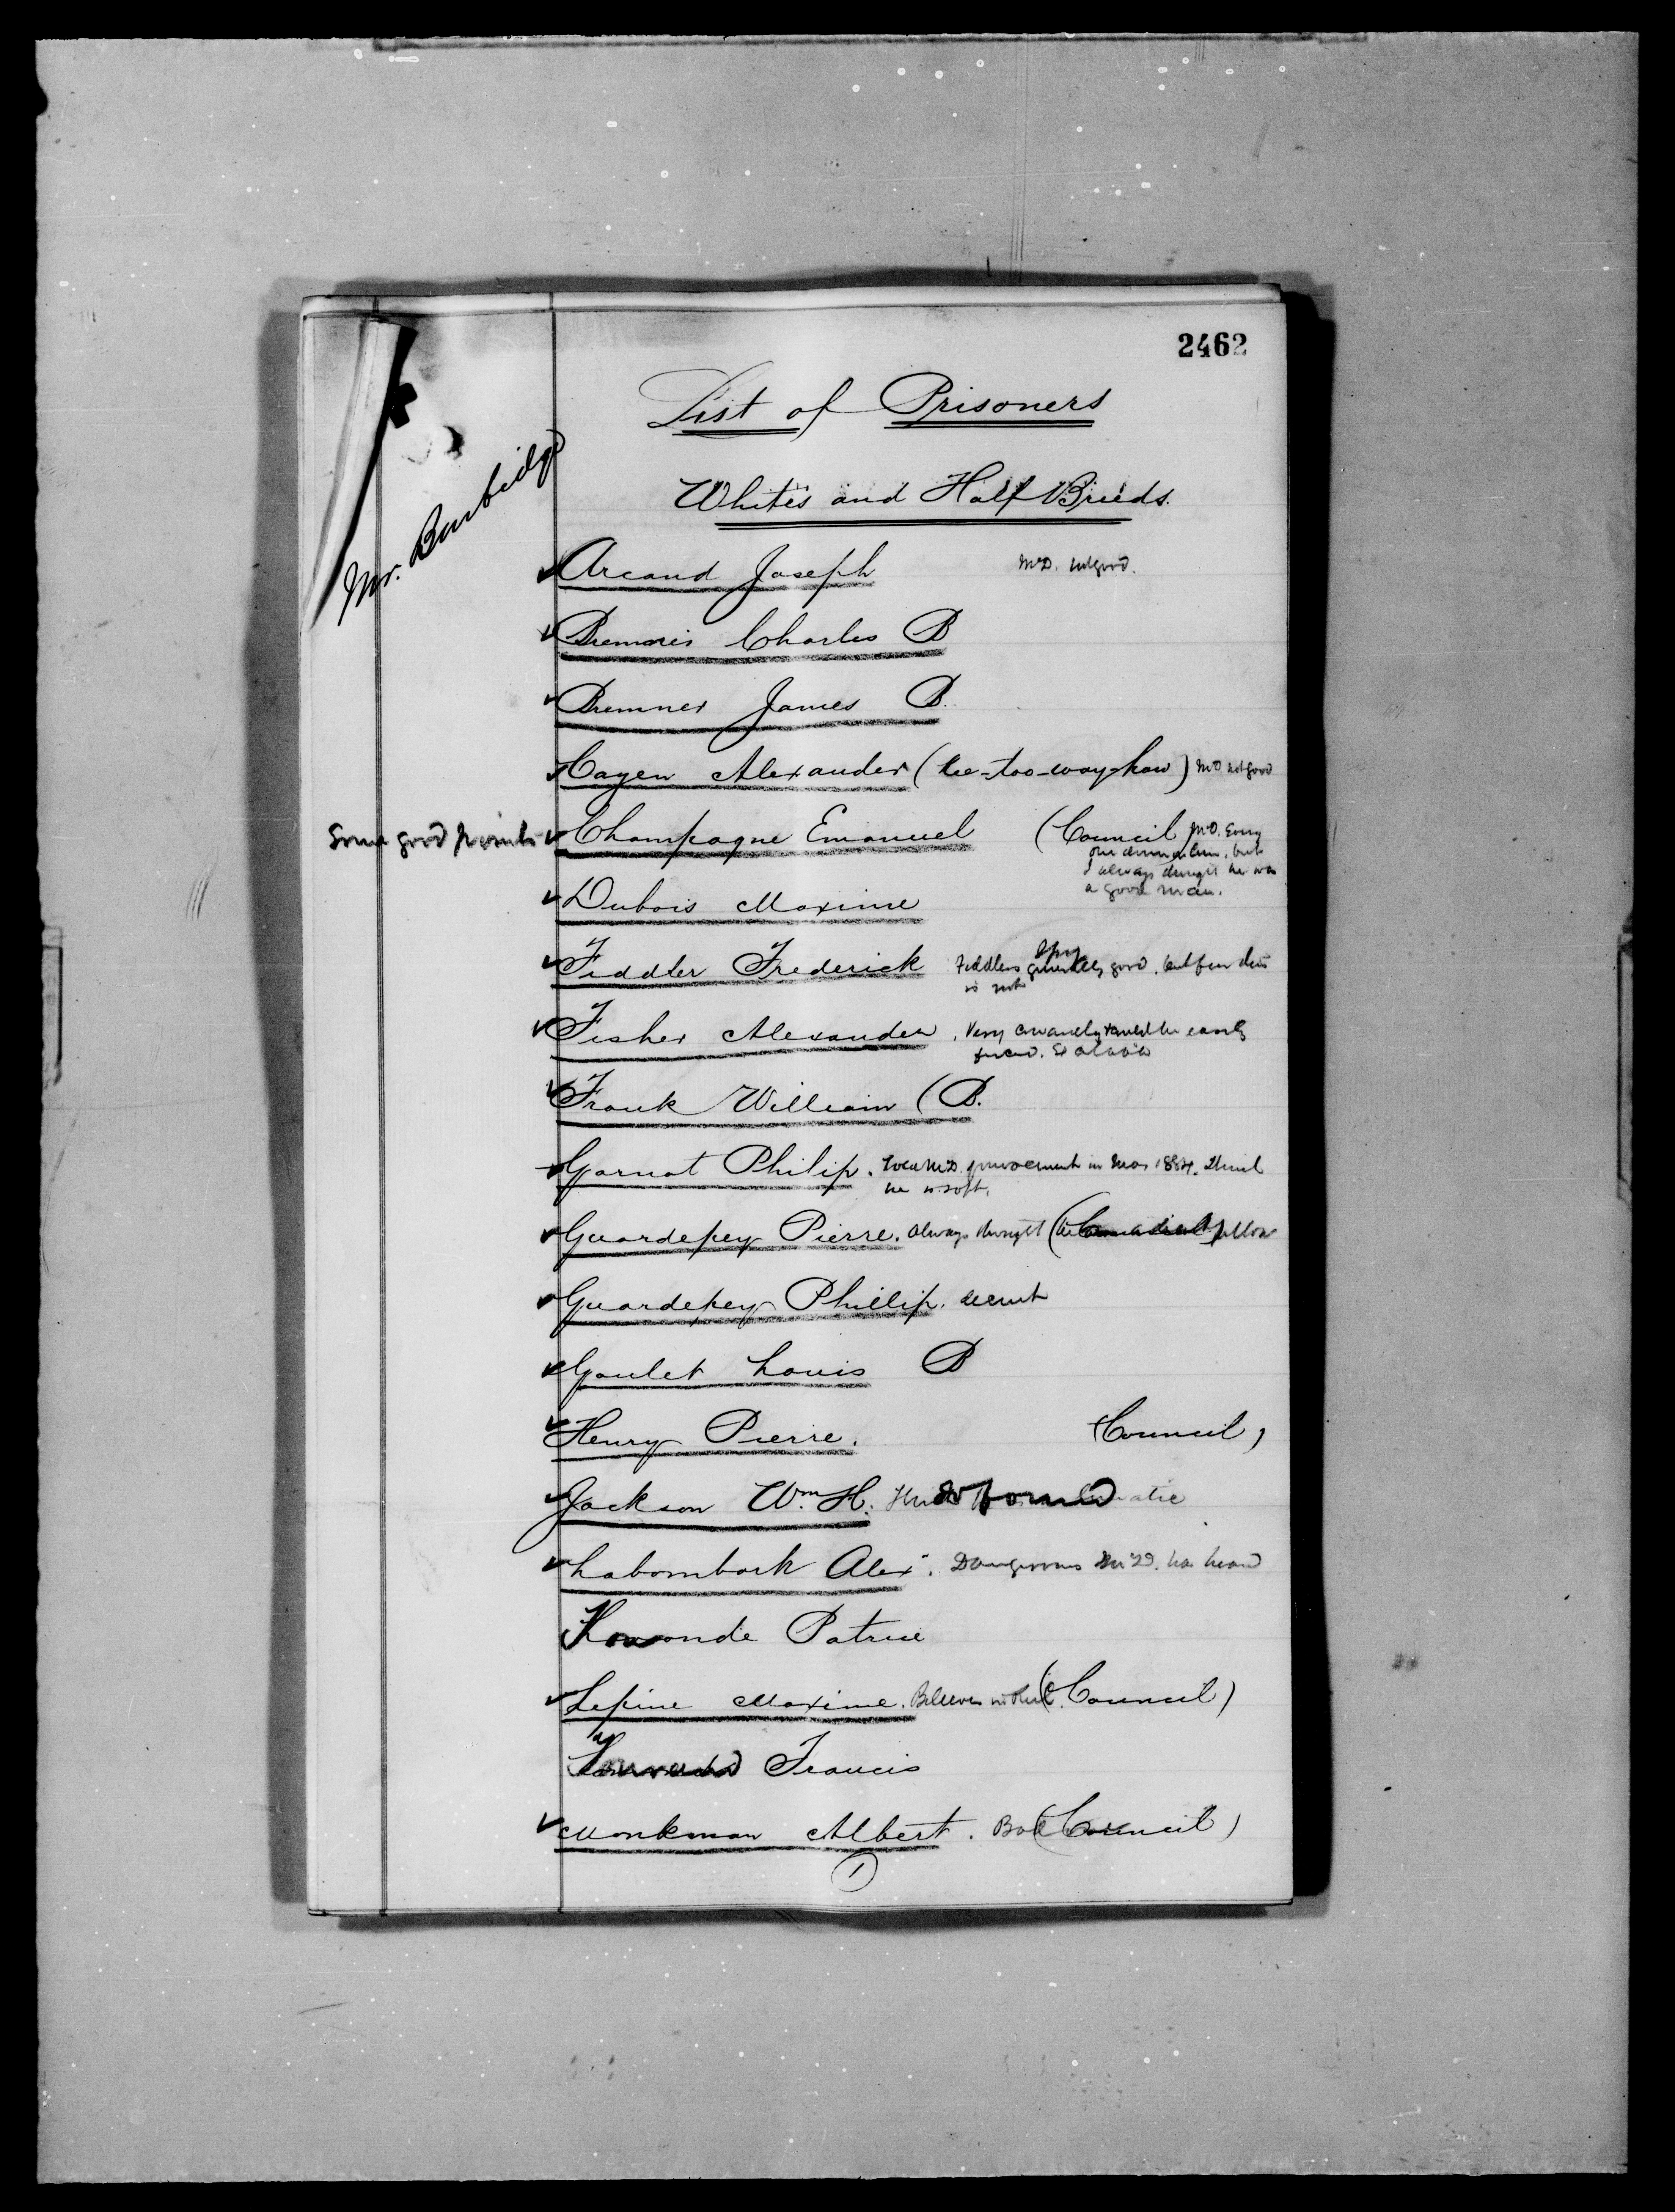 2462
List of Prisoners
Mr. Burbidge
Whites and Half Breeds.
Arcand Joseph McD. not good.
Bremner Charles B
Bremner James B.
Cayen Alexander (Kee-too-way-how) McD. not good
Some good points Champagne Emanuel (Council McD. Every
one down on him, but
I always thought he was
a good man.
Dubois Maxime
Spy
Fiddler Frederick Fiddlers generally good, but
is not
Fisher Alexander. Very easily
Frank William (B.
Garnot Philip. movement in 1884. Think
he is soft.
Guardepey Pierre. Always thought fellow
Guardepey Phillip. decent
Goulet Louis B
Henry Pierre. (Council)
Jackson Wm. H.
Labombark Alex. Dangerous McD. has heard
Patrice
Lepine Maxime. Believes in (Council)
Francis
Monkman Albert. Bad (Council)
1